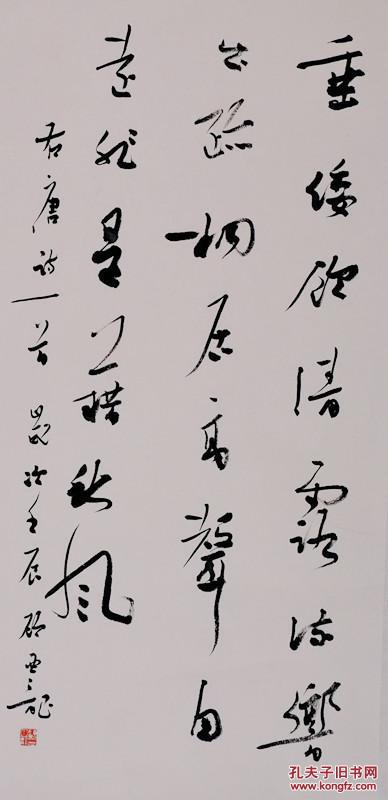 垂緌飲清露流響
出疏桐居高聲自
遠非是藉秋風
右唐詩一首 歲次壬辰 顧亞龍
孔夫子旧书网